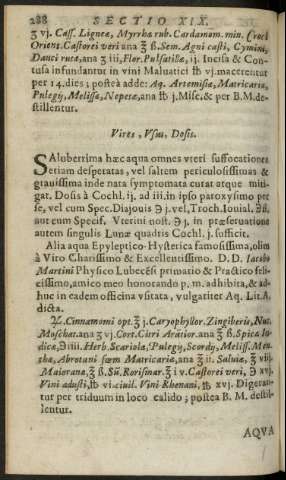 288 SECTIO XIX.
ʒ vj. Cass. Ligneæ, Myrrhæ rub. Cardamom. min. Croci
Orient. Castorei veri ana ʒ ß. Sem. Agni casti, Cymini,
Dauci rutæ, ana ʒ iij, Flor. Pulsatillæ, ij. Incisa & Con-
tusa infundantur in vini Maluatici ℔ vj. macerentur
per 14. dies; posteà adde: Aq. Artemisiæ, Matricariæ,
Pulegij, Melissæ, Nepetæ, ana ℔ j. Misc. & per B. M. de-
stillentur.
Vires, Vsus, Dosis.
SAluberrima hæc aqua omnes vteri suffocationes
etiam desperatas, vel saltem periculosissimas &
grauissima inde nata symptomata curat atque miti-
gat. Dosis à Cochl. ij. ad iij. in ipso paroxysmo per
se, vel cum Spec. Diajouis ℈ j. vel, Troch. Iouial. ℈ß.
aut cum Specif. Vterini nost. ℈ j. in præseruatione
autem singulis Lunæ quadris Cochl. j. sufficit.
Alia aqua Epyleptico-Hysterica famosissima, olim
à Viro Clarissimo & Excellentissimo. D. D. Iacobo
Martini Physico Lubecēsi primatio & Practico feli-
cissimo, amico meo honorando p. m. adhibita, & ad-
huc in eadem officina vsitata, vulgatiter Aq. Lit. A.
dicta.
♃. Cinnamomi opt. ℥ j. Caryophyllor. Zingiberis, Nuc.
Moschat. ana ʒ vj. Cort. Citri Aratior. ana ʒ ß. Spicæ In-
dicæ, ℈ iiij. Herb. Scariolæ, Pulegij, Scordij, Meliss. Men-
thæ, Abrotani fœm Matricariæ, ana ʒ ij. Saluiæ, ʒ viij.
Maioranæ, ʒ ß. Sū. Rorismar. ʒ i v. Castorei veri, ℈ xvj.
Vini adusti, ℔ vi. ciuil. Vini Rhenani, ℔ xvj. Digeran-
tur per triduum in loco calido; postea B. M. destil-
lentur.
AQVA